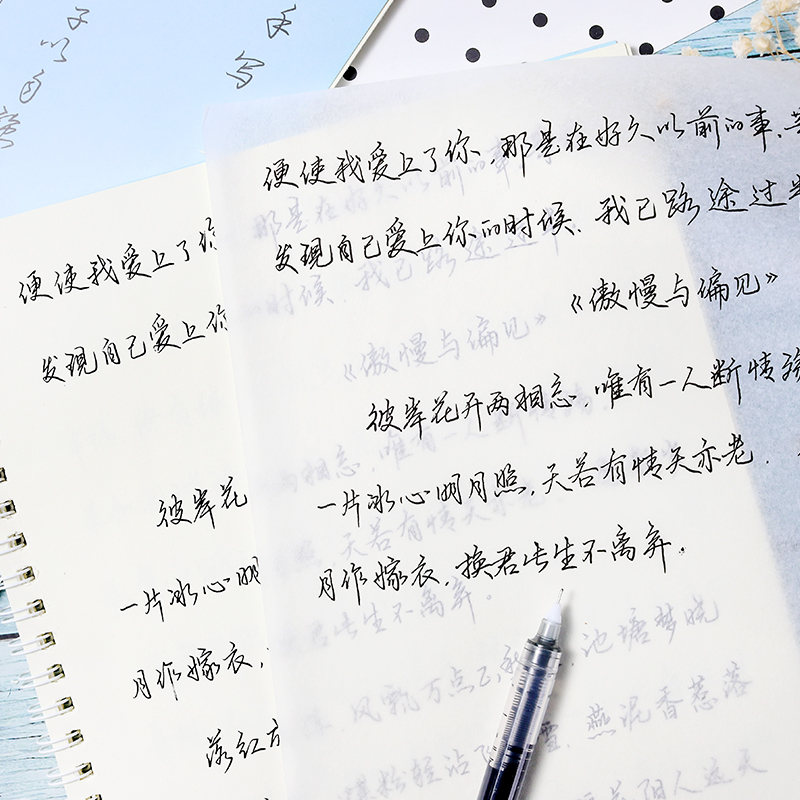 便使我爱上了你,那是在好久以前的事.
发现自己爱上你的时候.我已路途过半
《傲慢与偏见》
彼岸花开两相忘,唯有一人断情殇
一片冰心明月照,天若有情天亦老.
月作嫁衣,换君此生不离弃.
池塘梦晓
风飘万点
燕泥香惹落
轻沾飞
雪
人远天
便使我爱上了你
发现自己爱上你
彼岸花
一片冰心明
月作嫁衣,
落红